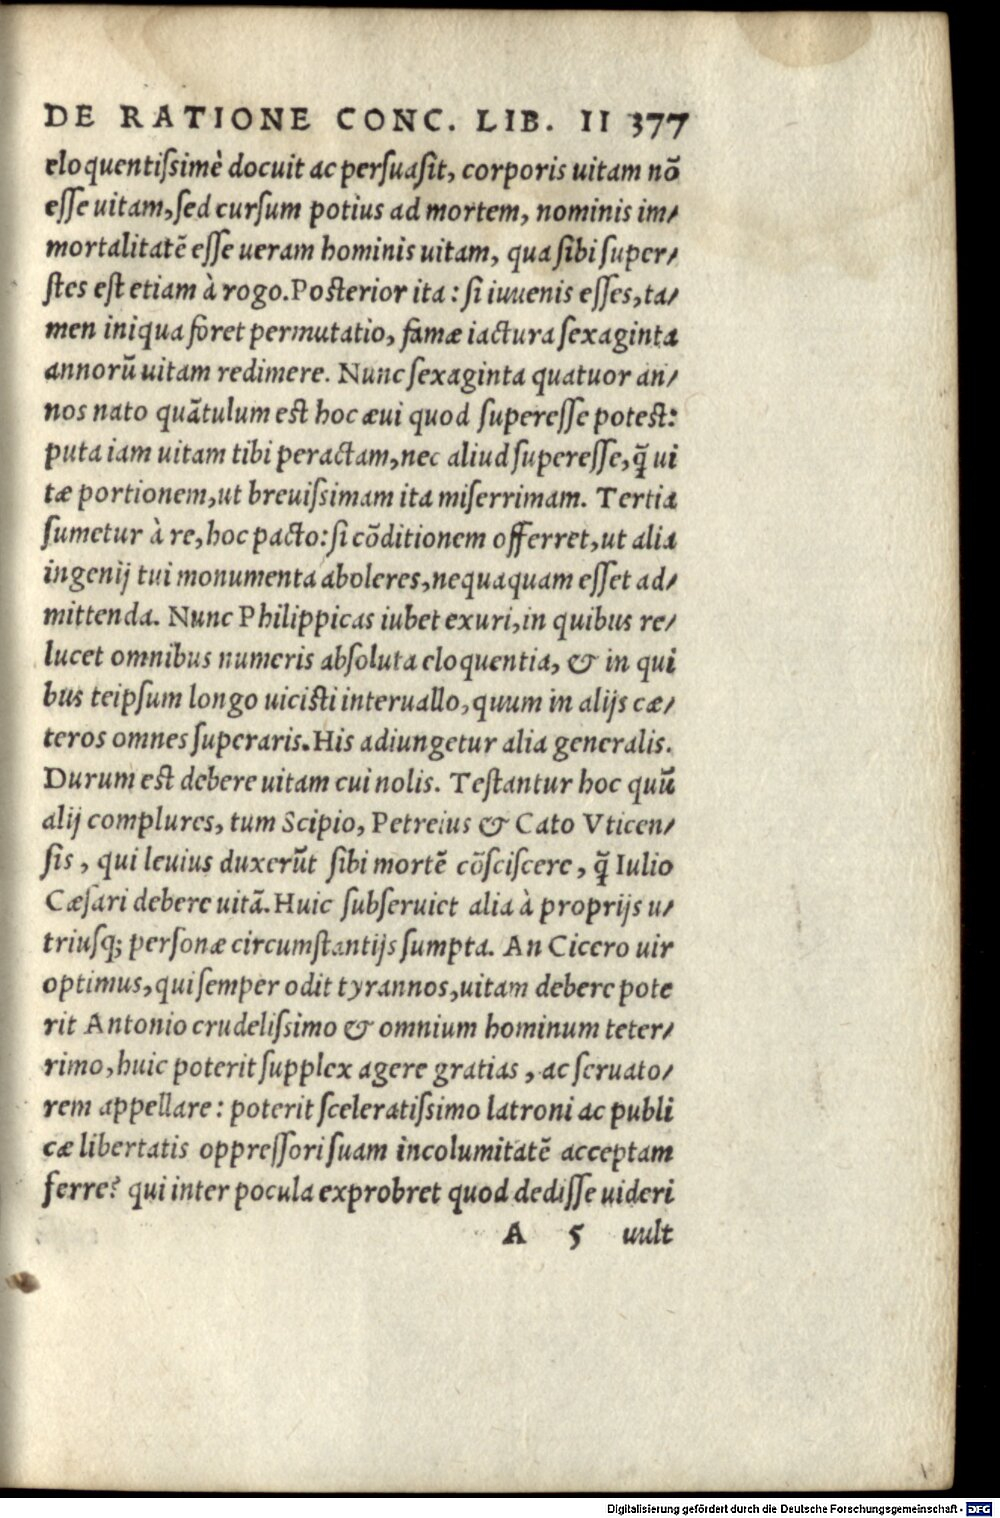 DE RATIONE CONC. LIB. II 377
eloquentiſsimè docuit ac perſuaſit, corporis uitam nō
eſſe uitam, ſed curſum potius ad mortem, nominis im/
mortalitatē eſſe ueram hominis uitam, qua ſibi ſuper/
ſtes eſt etiam à rogo. Poſterior ita: ſi iuuenis eſſes, ta/
men iniqua foret permutatio, famæ iactura ſexaginta
annorū uitam redimere. Nunc ſexaginta quatuor an/
nos nato quātulum eſt hoc æui quod ſupereſſe poteſt:
puta iam uitam tibi peractam, nec aliud ſupereſſe, q̃ ui
tæ portionem, ut breuiſsimam ita miſerrimam. Tertia
ſumetur à re, hoc pacto: ſi cōditionem offerret, ut alia
ingenij tui monumenta aboleres, nequaquam eſſet ad/
mittenda. Nunc Philippicas iubet exuri, in quibus re/
lucet omnibus numeris abſoluta eloquentia, & in qui
bus teipſum longo uiciſti interuallo, quum in alijs cæ/
teros omnes ſuperaris. His adiungetur alia generalis.
Durum eſt debere uitam cui nolis. Teſtantur hoc quū
alij complures, tum Scipio, Petreius & Cato Vticen/
ſis, qui leuius duxerūt ſibi mortē cōſciſcere, q̃ Iulio
Cæſari debere uitā. Huic ſubſeruiet alia à proprijs u/
triuſq; perſonæ circumſtantijs ſumpta. An Cicero uir
optimus, qui ſemper odit tyrannos, uitam debere pote
rit Antonio crudeliſsimo & omnium hominum teter/
rimo, huic poterit ſupplex agere gratias, ac ſeruato/
rem appellare: poterit ſceleratiſsimo latroni ac publi
cæ libertatis oppreſſori ſuam incolumitatē acceptam
ferre? qui inter pocula exprobret quod dediſſe uideri
A 5 uult
Digitalisierung gefördert durch die Deutsche Forschungsgemeinschaft - DFG